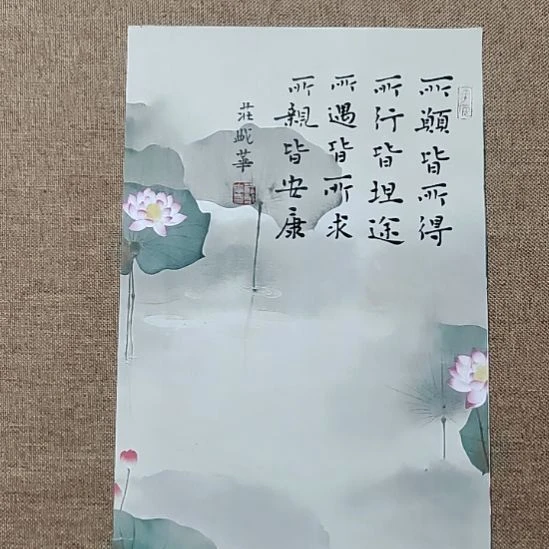 所願皆所得
所行皆坦途
所遇皆所求
所親皆安康
莊盛華